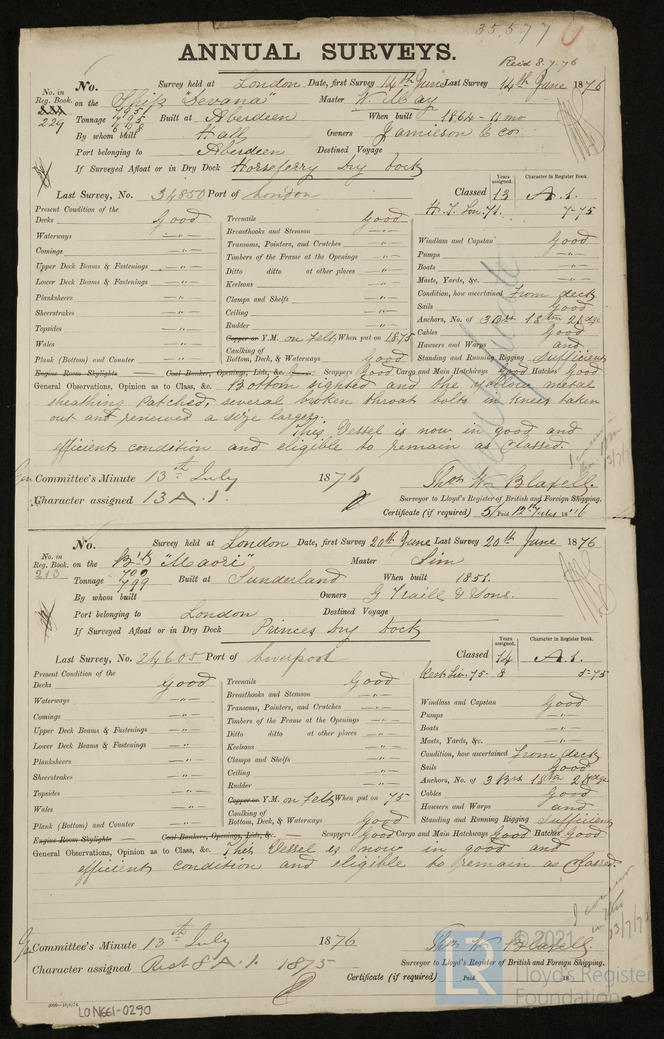 35,577
ANNUAL SURVEYS.
Rec'd 8.7.76
No. in Reg. Book.
229
No. Survey held at London Date, first Survey 14th June Last Survey 14th June 1876
on the Ship "Devana" Master W. May
Tonnage 795 Built at Aberdeen When built 1864 - 11 mo
By whom built Hall Owners Jamieson & Co
Port belonging to Aberdeen Destined Voyage
If Surveyed Afloat or in Dry Dock Horseferry Dry Dock
Years assigned. Character in Register Book.
Last Survey, No. 34850 Port of London Classed 13 A.1.
7-75
Present Condition of the
Decks Good
Waterways —"—
Comings —"—
Upper Deck Beams & Fastenings —"—
Lower Deck Beams & Fastenings —"—
Planksheers —"—
Sheerstrakes —"—
Topsides —"—
Wales —"—
Plank (Bottom) and Counter —"—
Treenails Good
Breasthooks and Stemson —"—
Transoms, Pointers, and Crutches —"—
Timbers of the Frame at the Openings —"—
Ditto ditto at other places —"—
Keelsons —"—
Clamps and Shelfs —"—
Ceiling —"—
Rudder —"—
Copper or Y.M. on Felt When put on 1875
Caulking of Bottom, Deck, & Waterways Good
Windlass and Capstan Good
Pumps —"—
Boats —"—
Masts, Yards, &c. —"—
Condition, how ascertained From deck
Sails Good
Anchors, No. of 3 Brs 1 Stm 2 Kdge
Cables Good
Hawsers and Warps and
Standing and Running Rigging Sufficient
Engine Room Skylights — Coal Bunker, Openings, Lids, &c. — Scuppers Good Cargo and Main Hatchways Good Hatches Good
General Observations, Opinion as to Class, &c. Bottom sighted and the yellow metal
sheathing patched, several broken throat bolts in knees taken
out and renewed a size larger.
This Vessel is now in good and
efficient condition and eligible to remain as Classed.
Committee's Minute 13th July 1876
Thos Wm Blafell
Character assigned 13 A.1.
Surveyor to Lloyd's Register of British and Foreign Shipping.
Certificate (if required) 5/ Paid
13/7/76
No. in Reg. Book.
213
No. Survey held at London Date, first Survey 20th June Last Survey 20th June 1876
on the Bk "Maori" Master Sim
Tonnage 799 Built at Sunderland When built 1851.
By whom built Owners G Traill & Sons.
Port belonging to London Destined Voyage
If Surveyed Afloat or in Dry Dock Princes Dry Dock
Years assigned. Character in Register Book.
Last Survey, No. 24605 Port of Liverpool Classed 14 A.1.
Rest Liv. 75 - 8 5-75
Present Condition of the
Decks Good
Waterways —"—
Comings —"—
Upper Deck Beams & Fastenings —"—
Lower Deck Beams & Fastenings —"—
Planksheers —"—
Sheerstrakes —"—
Topsides —"—
Wales —"—
Plank (Bottom) and Counter —"—
Treenails Good
Breasthooks and Stemson —"—
Transoms, Pointers, and Crutches —"—
Timbers of the Frame at the Openings —"—
Ditto ditto at other places —"—
Keelsons —"—
Clamps and Shelfs —"—
Ceiling —"—
Rudder —"—
Copper or Y.M. on Felt When put on 75
Caulking of Bottom, Deck, & Waterways Good
Windlass and Capstan Good
Pumps —"—
Boats —"—
Masts, Yards, &c. —"—
Condition, how ascertained From deck
Sails Good
Anchors, No. of 3 Brs 1 Stm 2 Kdge
Cables Good
Hawsers and Warps and
Standing and Running Rigging Sufficient
Engine Room Skylights — Coal Bunkers, Openings, Lids, &c. — Scuppers Good Cargo and Main Hatchways Good Hatches Good
General Observations, Opinion as to Class, &c. This Vessel is now in good and
efficient condition and eligible to remain as Classed.
Committee's Minute 13th July 1876
Thos Wm Blafell
Character assigned Rest 8 A.1. 1875
Surveyor to Lloyd's Register of British and Foreign Shipping.
Certificate (if required) Paid 18
13/7/76
LON661-0290
© 2021
LR
Lloyd's Register
Foundation